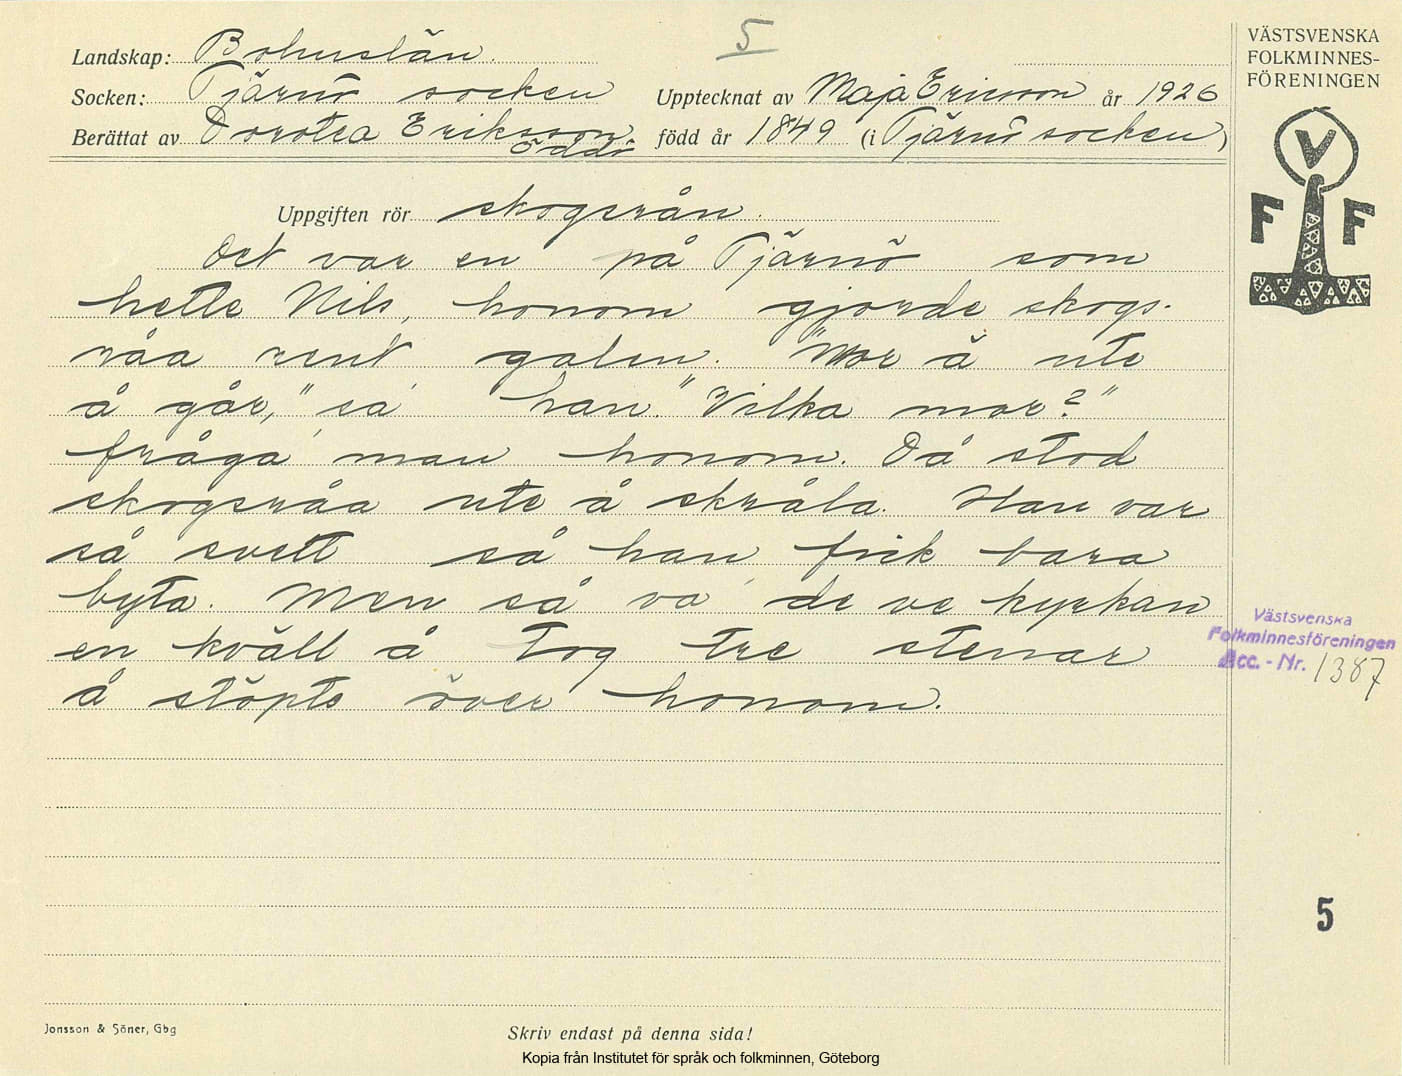 5
Landskap: Bohuslän.
Socken: Tjärnö socken
Upptecknat av Maja Ericsson år 1926
Berättat av Dorotea Eriksson
Öddö
född år 1849 (i Tjärnö socken)
Uppgiften rör skogsrån.
Det var en på Tjärnö som
hette Nils, honom gjorde skogs-
råa rent galen. "Mor ä ute
å går," sa han. "Vilka mor?"
fråga man honom. Då stod
skogsråa ute å skråla. Han var
så svett så han fick bara
byta. Men så va de ve kyrkan
en kväll å tog tre stenar
å stöpte över honom.
Jonsson & Söner, Gbg
Skriv endast på denna sida!
Kopia från Institutet för språk och folkminnen, Göteborg
VÄSTSVENSKA
FOLKMINNES-
FÖRENINGEN
V
F F
Västsvenska
Folkminnesföreningen
Acc. - Nr. 1387
5